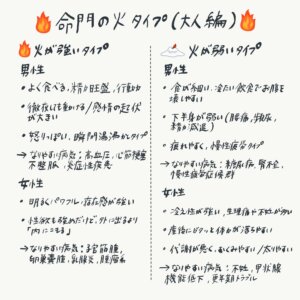 命門の火タイプ(大人編)
火が強いタイプ
男性
・よく食べる、精力旺盛、行動力
・徹夜しても動ける/感情の起伏
が大きい
・怒りっぽい、瞬間湯沸かしタイプ
→なりやすい病気:高血圧、心筋梗塞
不整脈、炎症性疾患
女性
・明るくパワフル、存在感が強い
・性欲も強めだけど、外に出るより
「内にこもる」
→なりやすい病気:子宮筋腫、
卵巣嚢腫、乳腺炎、腫瘍系
火が弱いタイプ
男性
・食が細い、冷たい飲食でお腹を
壊しやすい
・下半身が弱い(腰痛、頻尿、
精力減退)
・疲れやすく、慢性疲労タイプ
→なりやすい病気:糖尿病、腎不全、
慢性疲労症候群
女性
・冷え性が強い、生理痛や不妊が多い
・産後にガクッと体力が落ちやすい
・代謝が悪く、むくみやすい/太りやすい
→なりやすい病気:不妊、甲状腺
機能低下、更年期トラブル